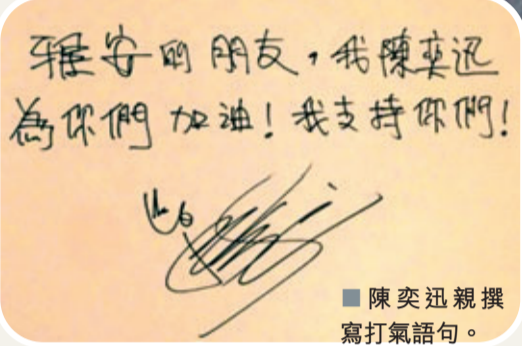 雅安的朋友，我陳奕迅
為你們加油！我支持你們！
■陳奕迅親撰
寫打氣語句。